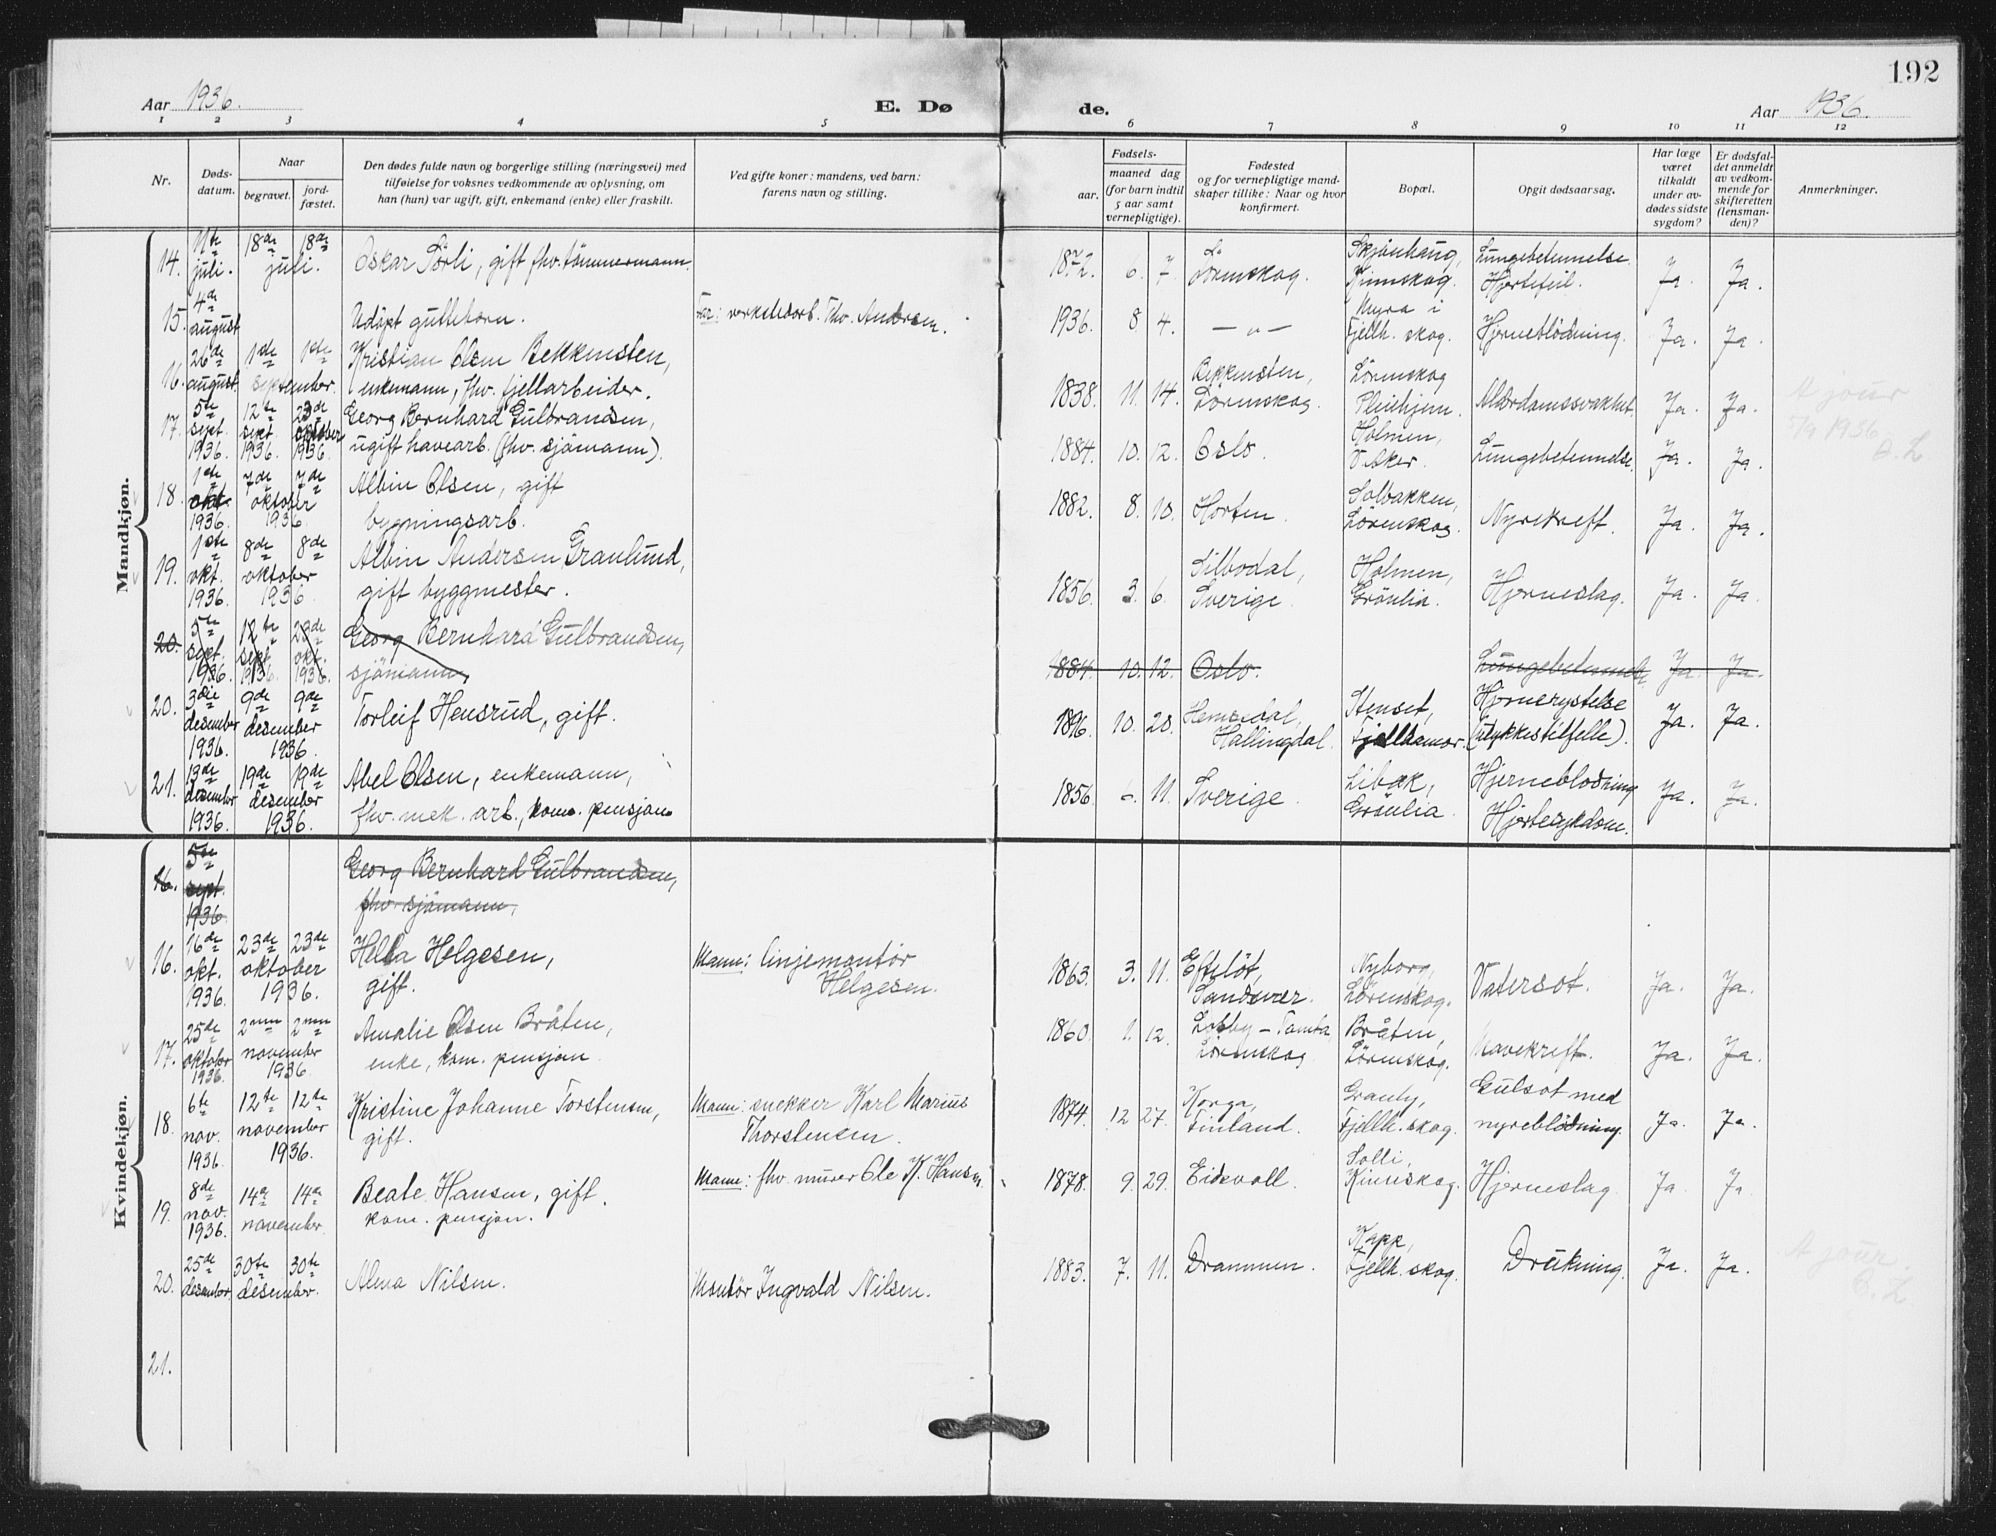 192
Aar 1936. E. Dø de. Aar 1936.
1 2 3 4 5 6 7 8 9 10 11 12
Nr.
Døds-
datum.
Naar
begravet.
jord-
fæstet.
Den dødes fulde navn og borgerlige stilling (næringsvei) med
tilføielse for voksnes vedkommende av oplysning, om
han (hun) var ugift, gift, enkemand (enke) eller fraskilt.
Ved gifte koner: mandens, ved barn:
farens navn og stilling.
Fødsels-
aar.
maaned dag
(for barn indtil
5 aar samt
vernepligtige).
Fødested
og for vernepligtige mand-
skaper tillike: Naar og hvor
konfirmert.
Bopæl.
Opgit dødsaarsag.
Har læge
været
tilkaldt
under av-
dødes sidste
sygdom?
Er dødsfal-
det anmeldt
av vedkom-
mende for
skifteretten
(lensman-
den)?
Anmerkninger.
Mandkjøn.
14. 11te juli. 18de juli. 18de Oskar Sörli, gift fhv. tömmermann. 1872. 6. 7. Lörenskog. Skjönhaug, Kinnskog. Lungebetennelse. Hjertefeil. Ja. Ja.
15. 4de august Udöpt guttebarn. Far: verkstedarb. Thv. Andersen. 1936. 8. 4. — „ — Myra i Fjellh. skog. Hjerneblödning. Ja. Ja.
16. 26de august 1ste september. 1ste Kristian Olsen Bekkensten,
enkemann, fhv. fjellarbeider. 1838. 11. 14. Bekkensten, Lörenskog. Lörenskog Pleiehjem. Alderdomssvakhet. Ja. Ja.
A jour
5/9 1936
17. 5te sept. 1936. 12te sept. 1936. 23de oktober 1936. Georg Bernhard Gulbrandsen,
ugift havearb. (fhv. sjömann). 1884. 10. 12. Oslo. Holmen, V. Aker. Lungebetennelse. Ja. Ja.
18. 1ste okt. 1936. 7de oktober 1936. 7de Albin Olsen, gift
bygningsarb. 1882. 8. 10. Horten. Solbakken, Lörenskog. Nyrekreft. Ja. Ja.
19. 1ste okt. 1936. 8de oktober 1936. 8de Albin Andersen Granlund,
gift byggmester. 1856. 3. 6. Silbodal, Sverige. Holmen, Grönlia. Hjerneslag. Ja. Ja.
20. 5te sept. 1936. 12te sept. 1936. 23de okt. 1936. Georg Bernhard Gulbrandsen,
sjömann, 1884. 10. 12. Oslo. Lungebetennelse Ja. Ja.
20. 3die desember 1936. 9de desember 1936. 9de Torleif Hensrud, gift. 1896. 10 20. Hemsedal, Hallingdal. Stenset, Fjelldamar. Hjernerystelse (ulykkestilfelle). Ja. Ja.
21. 13de desember 1936. 19de desember 1936. 19de Abel Olsen, enkemann,
fhv. mek. arb., kom. pensjon 1856. 6. 11. Sverige. Libak, Grönlia. Hjerneblodning Hjertesykdom. Ja. Ja.
Kvindekjøn.
16. 5te sept 1936. Georg Bernhard Gulbrandsen,
fhv. sjömann,
16. 16de okt. 1936. 23de oktober 1936. 23de Hella Helgesen,
gift. Mann: linjemontör Helgesen. 1863. 3. 11. Eftelöt, Sandsvær. Nyborg, Lörenskog. Vatersot. Ja. Ja.
17. 25de oktober 1936. 2nen november 1936. 2nen Amalie Olsen Bråten,
enke, kom. pensjon. 1860. 1. 12. Losby – Tomta Lörenskog Bråten, Lörenskog. Mavekreft. Ja. Ja.
18. 6te nov. 1936. 12te november 1936. 12te Kristine Johanne Torstensen,
gift. Mann: snekker Karl Marius Thorstensen. 1874. 12 27. Korga, Finland. Granly, Fjellh. skog. Gulsot med nyreblödning. Ja. Ja.
19. 8de nov. 1936. 14de november. 14de Beate Hansen, gift.
kom. pensjon. Mann: fhv. murer Ole K. Hansen 1878. 9. 29. Eidsvoll. Solli, Kinnskog. Hjerneslag Ja Ja.
20. 25de desember, 30te desember. 30te Alma Nilsen. Montör Ingvald Nilsen. 1883. 7. 11. Drammen. Kapp, Fjellh. skog. Drukning. Ja. Ja.
A jour.
21.